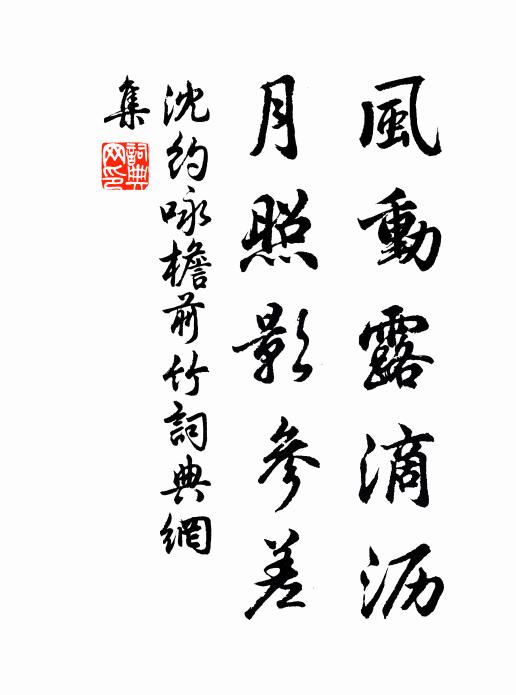 風動露滴沥
月照影參差
沈約咏檐前竹詞典網
集
詞典網印